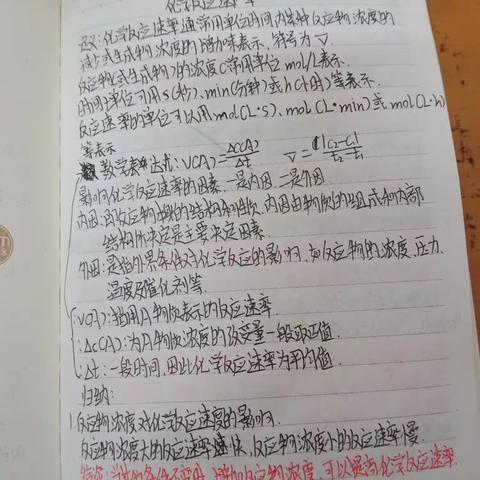 化学反应速率
定义:化学反应速率通常用单位时间内某种反应物浓度的
减少或生成物浓度的增加来表示、符号为V.
反应物(或生成物)的浓度C常用单位mol/L表示.
时间单位可用s(秒)、min(分钟)或h(小时)等表示.
反应速率的单位可以用mol(L·s)、mol(L·min)或mol(L·h)
等表示
数学表达式:V(A)=Δc(A)/Δt V=|C2-C1|/t2-t1
影响化学反应速率的因素.一是内因.二是外因
内因:即反应物的结构和性质.内因由物质的组成和内部
结构所决定是主要决定因素.
外因:是指外界条件对化学反应的影响,如反应物的浓度.压力.
温度及催化剂等.
V(A):指用A物质表示的反应速率.
Δc(A):为A物质浓度的改变量一般取正值.
Δt:一段时间,因此化学反应速率为平均值.
归纳:
1.反应物浓度对化学反应速度的影响.
反应物浓度大的反应速率速快.反应物浓度小的反应速率慢.
条件不变时,增加反应物浓度,可以提高化学反应速率.